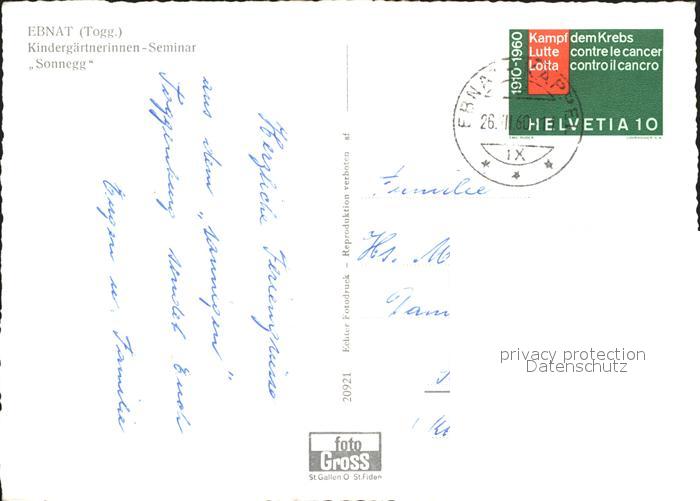 EBNAT (Togg.)
Kindergärtnerinnen-Seminar
„Sonnegg“
Herzliche Feriengrüsse
aus dem „sonnigen“
Toggenburg sendet Euch
Eugen u. Familie
20921 Echter Fotodruck - Reproduktion verboten sf
1910-1960
Kampf dem Krebs
Lutte contre le cancer
Lotta contro il cancro
HELVETIA 10
EBNAT-KAPPEL
26.
60
IX
Familie
Hs. M
privacy protection
Datenschutz
foto
Gross
St.Gallen O St.Fiden